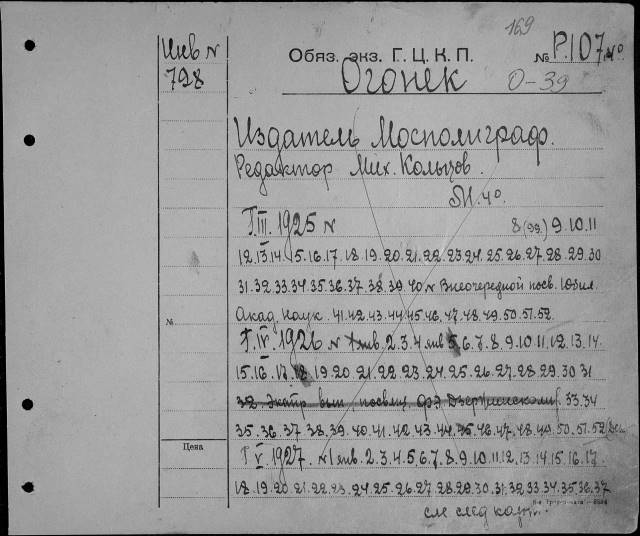 169
Инв N
798
Обяз. экз. Г. Ц. К. П.
№ Р.107 4°
Огонек
О-39
Издатель Мосполиграф.
Редактор Мих. Кольцов.
М. 4°.
Г. III. 1925 N 8 (99.) 9.10.11
12.13.14. 15.16.17. 18.19.20.21.22.23.24.25.26.27.28.29.30
31.32.33.34.35.36.37.38.39.40 N Внеочередной посв. Юбил.
Акад. Наук. 41.42.43.44.45.46.47.48.49.50.51.52.
Г. IV. 1926 N 1 янв. 2.3.4 янв 5.6.7.8.9.10.11.12.13.14
15.16.17.18.19.20.21.22.23.24.25.26.27.28.29.30 31
32. вып. посвящ. Дзержинскому 33.34
35.36.37.38.39.40.41.42.43.44.45.46.47.48.49.50.51.52
№
Цена
Г. V. 1927. N 1 янв. 2.3.4.5.6.7.8.9.10.11.12.13.14.15.16.17
18.19.20.21.22.23.24.25.26.27.28.29.30.31.32.33.34.35.36.37
след